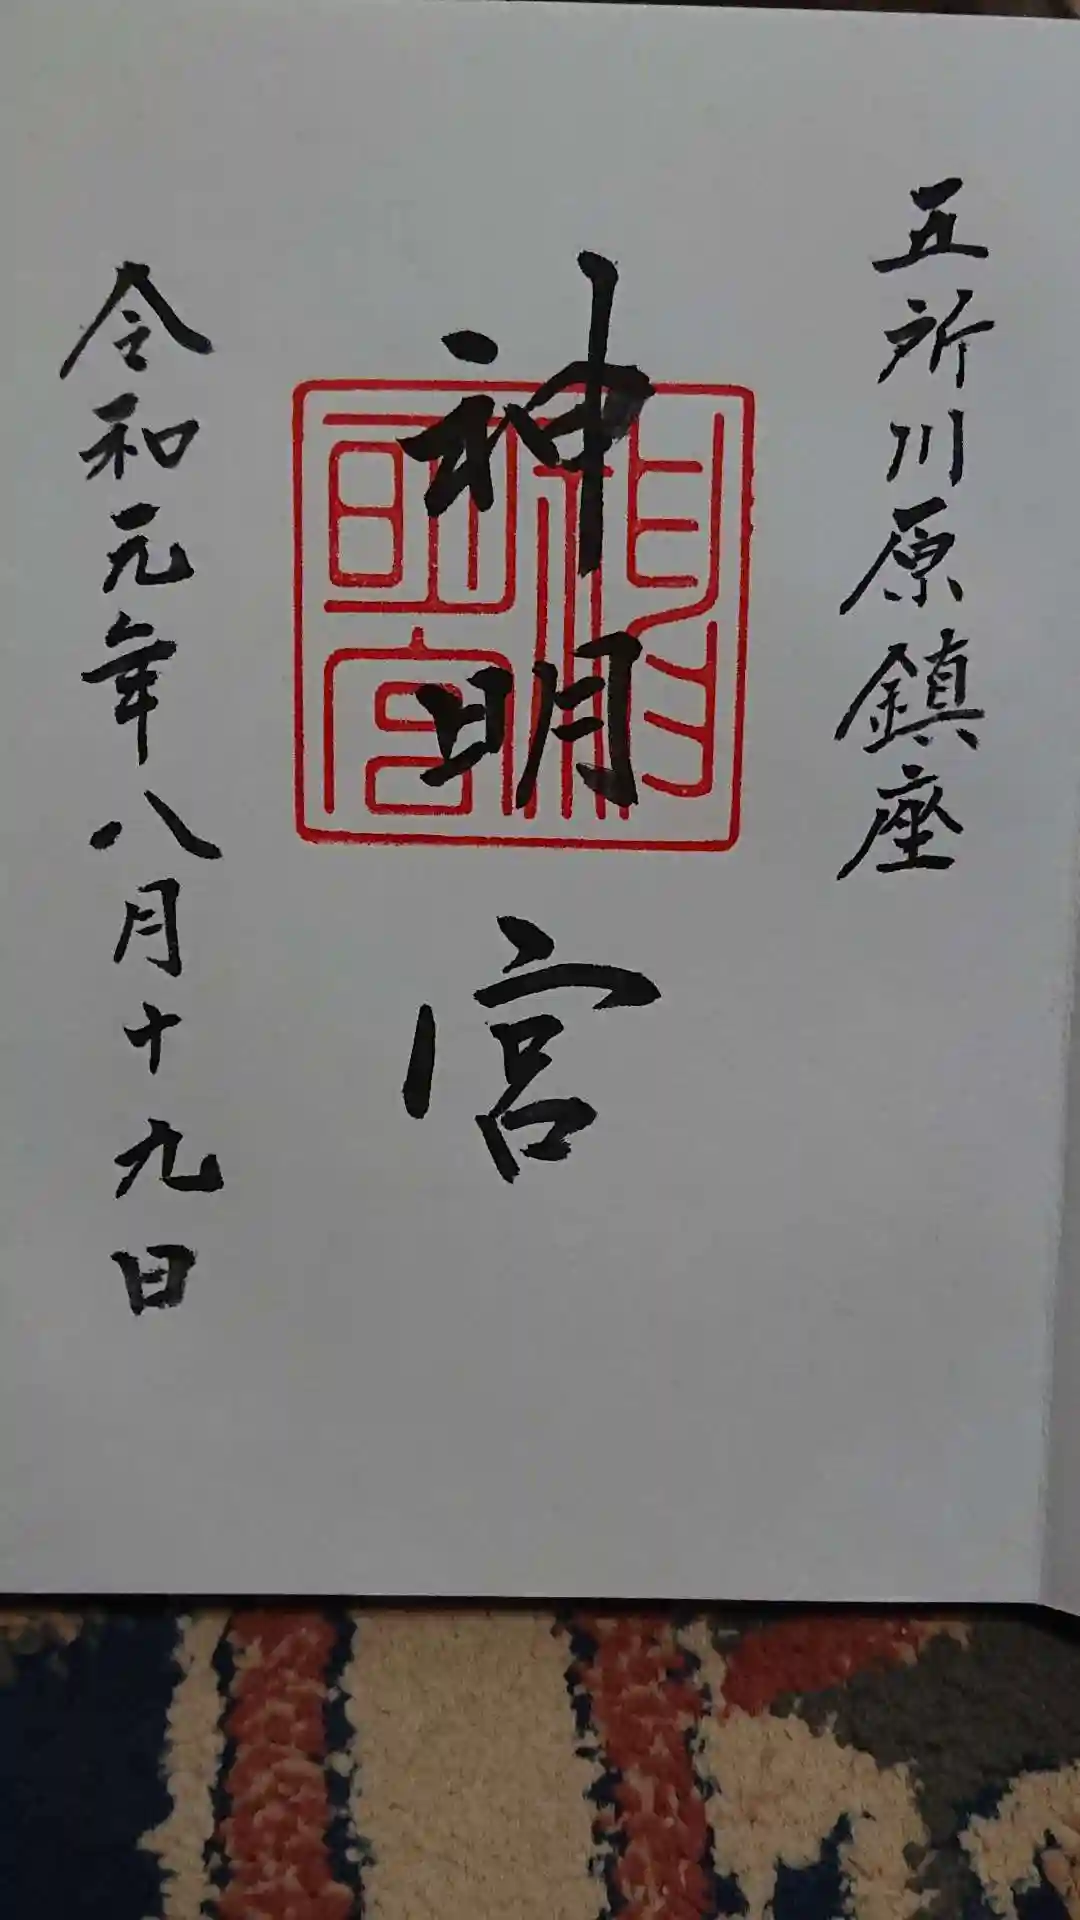 五所川原鎮座
神明宮
令和元年八月十九日